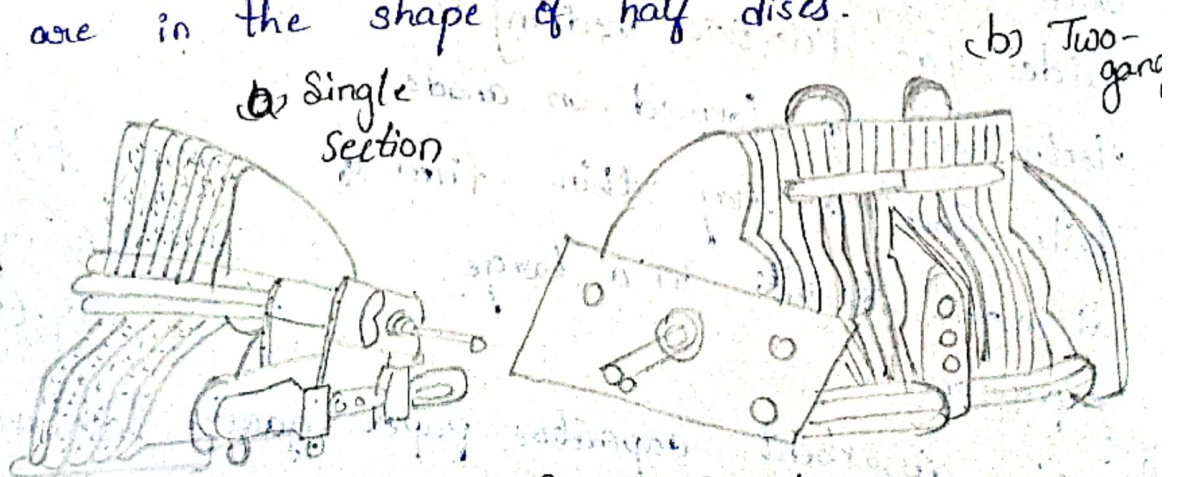 are in the shape of half discs.
a) Single
section
(b) Two-
gang